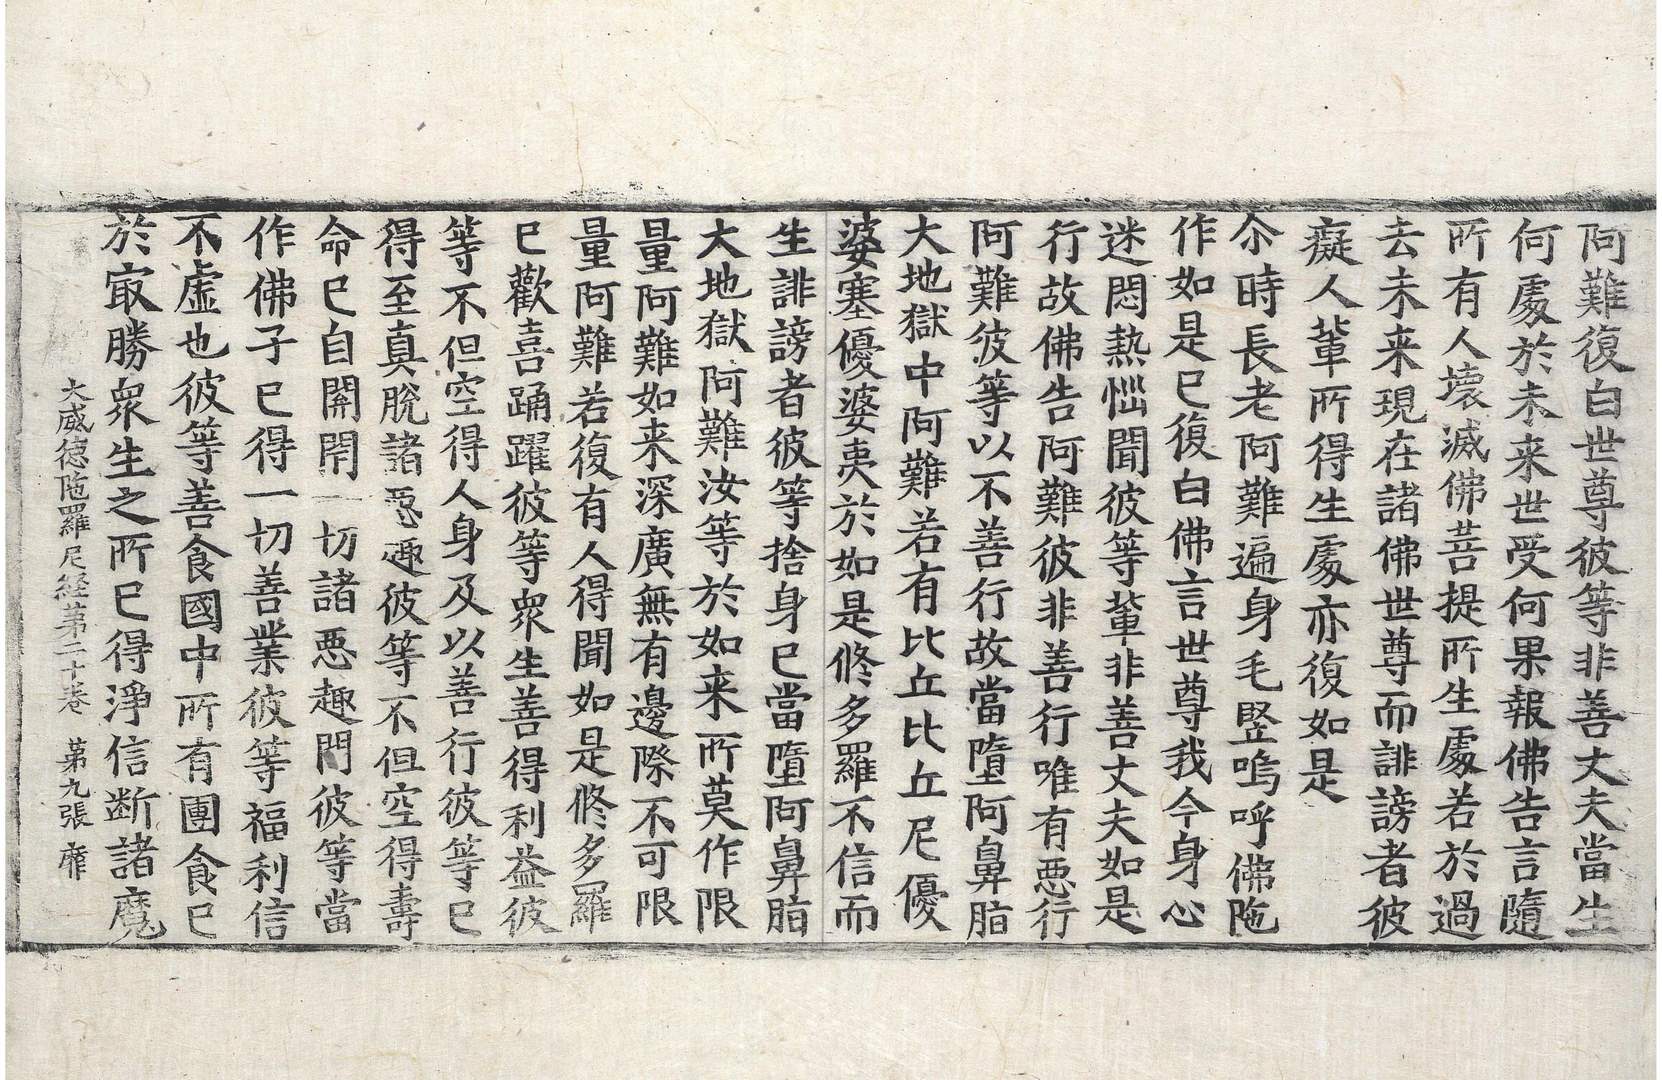 阿難復白世尊彼等非善丈夫當生
何處於未来世受何果報佛告言隨
所有人壞滅佛菩提所生處若於過
去未来現在諸佛世尊而誹謗者彼
癡人輩所得生處亦復如是
尒時長老阿難遍身毛竪嗚呼佛陁
作如是已復白佛言世尊我今身心
迷悶熱惱聞彼等輩非善丈夫如是
行故佛告阿難彼非善行唯有悪行
阿難彼等以不善行故當墮阿鼻脂
大地獄中阿難若有比丘比丘尼優
婆塞優婆夷於如是修多羅不信而
生誹謗者彼等捨身已當墮阿鼻脂
大地獄阿難汝等於如来所莫作限
量阿難如来深廣無有邊際不可限
量阿難若復有人得聞如是修多羅
已歡喜踊躍彼等衆生善得利益彼
等不但空得人身及以善行彼等已
得至真脫諸悪趣彼等不但空得壽
命已自關閇一切諸悪趣門彼等當
作佛子已得一切善業彼等福利信
不虛也彼等善食國中所有團食已
於㝡勝衆生之所已得淨信断諸魔
大威徳陁羅尼経苐二十卷 苐九張 靡